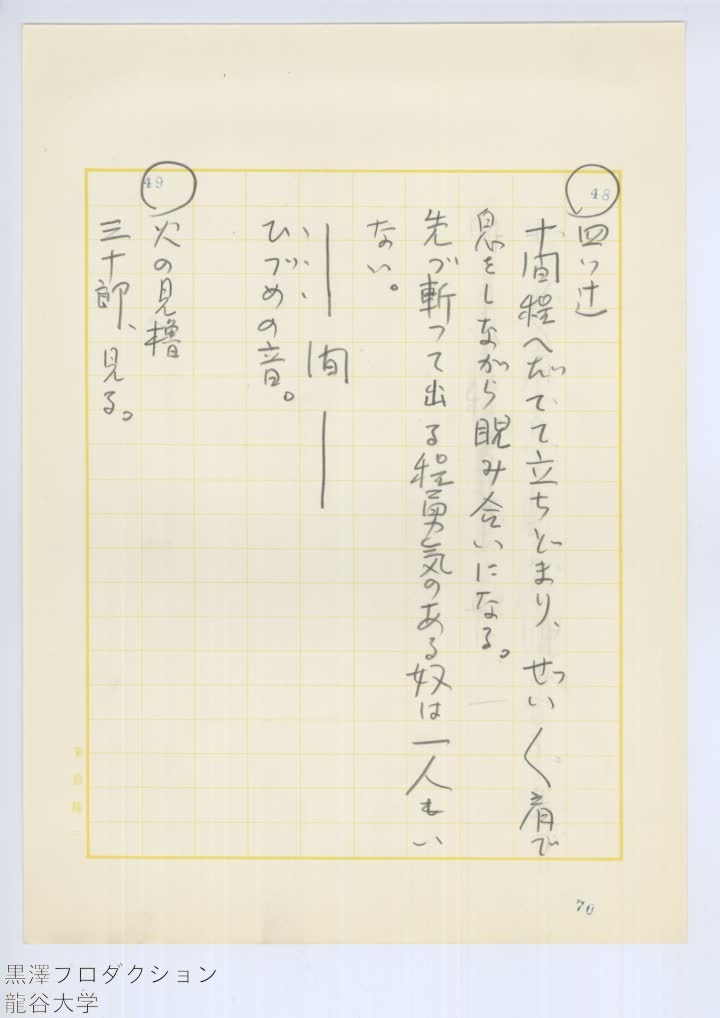 48
四ツ辻
十間程へだてて立ちどまり、せいい〳〵肩で
息をしながら睨み合いになる。
先づ斬って出る程勇気のある奴は一人もい
ない。
――間――
ひづめの音。
49
火の見櫓
三十郎、見る。
70
黒澤プロダクション
龍谷大学